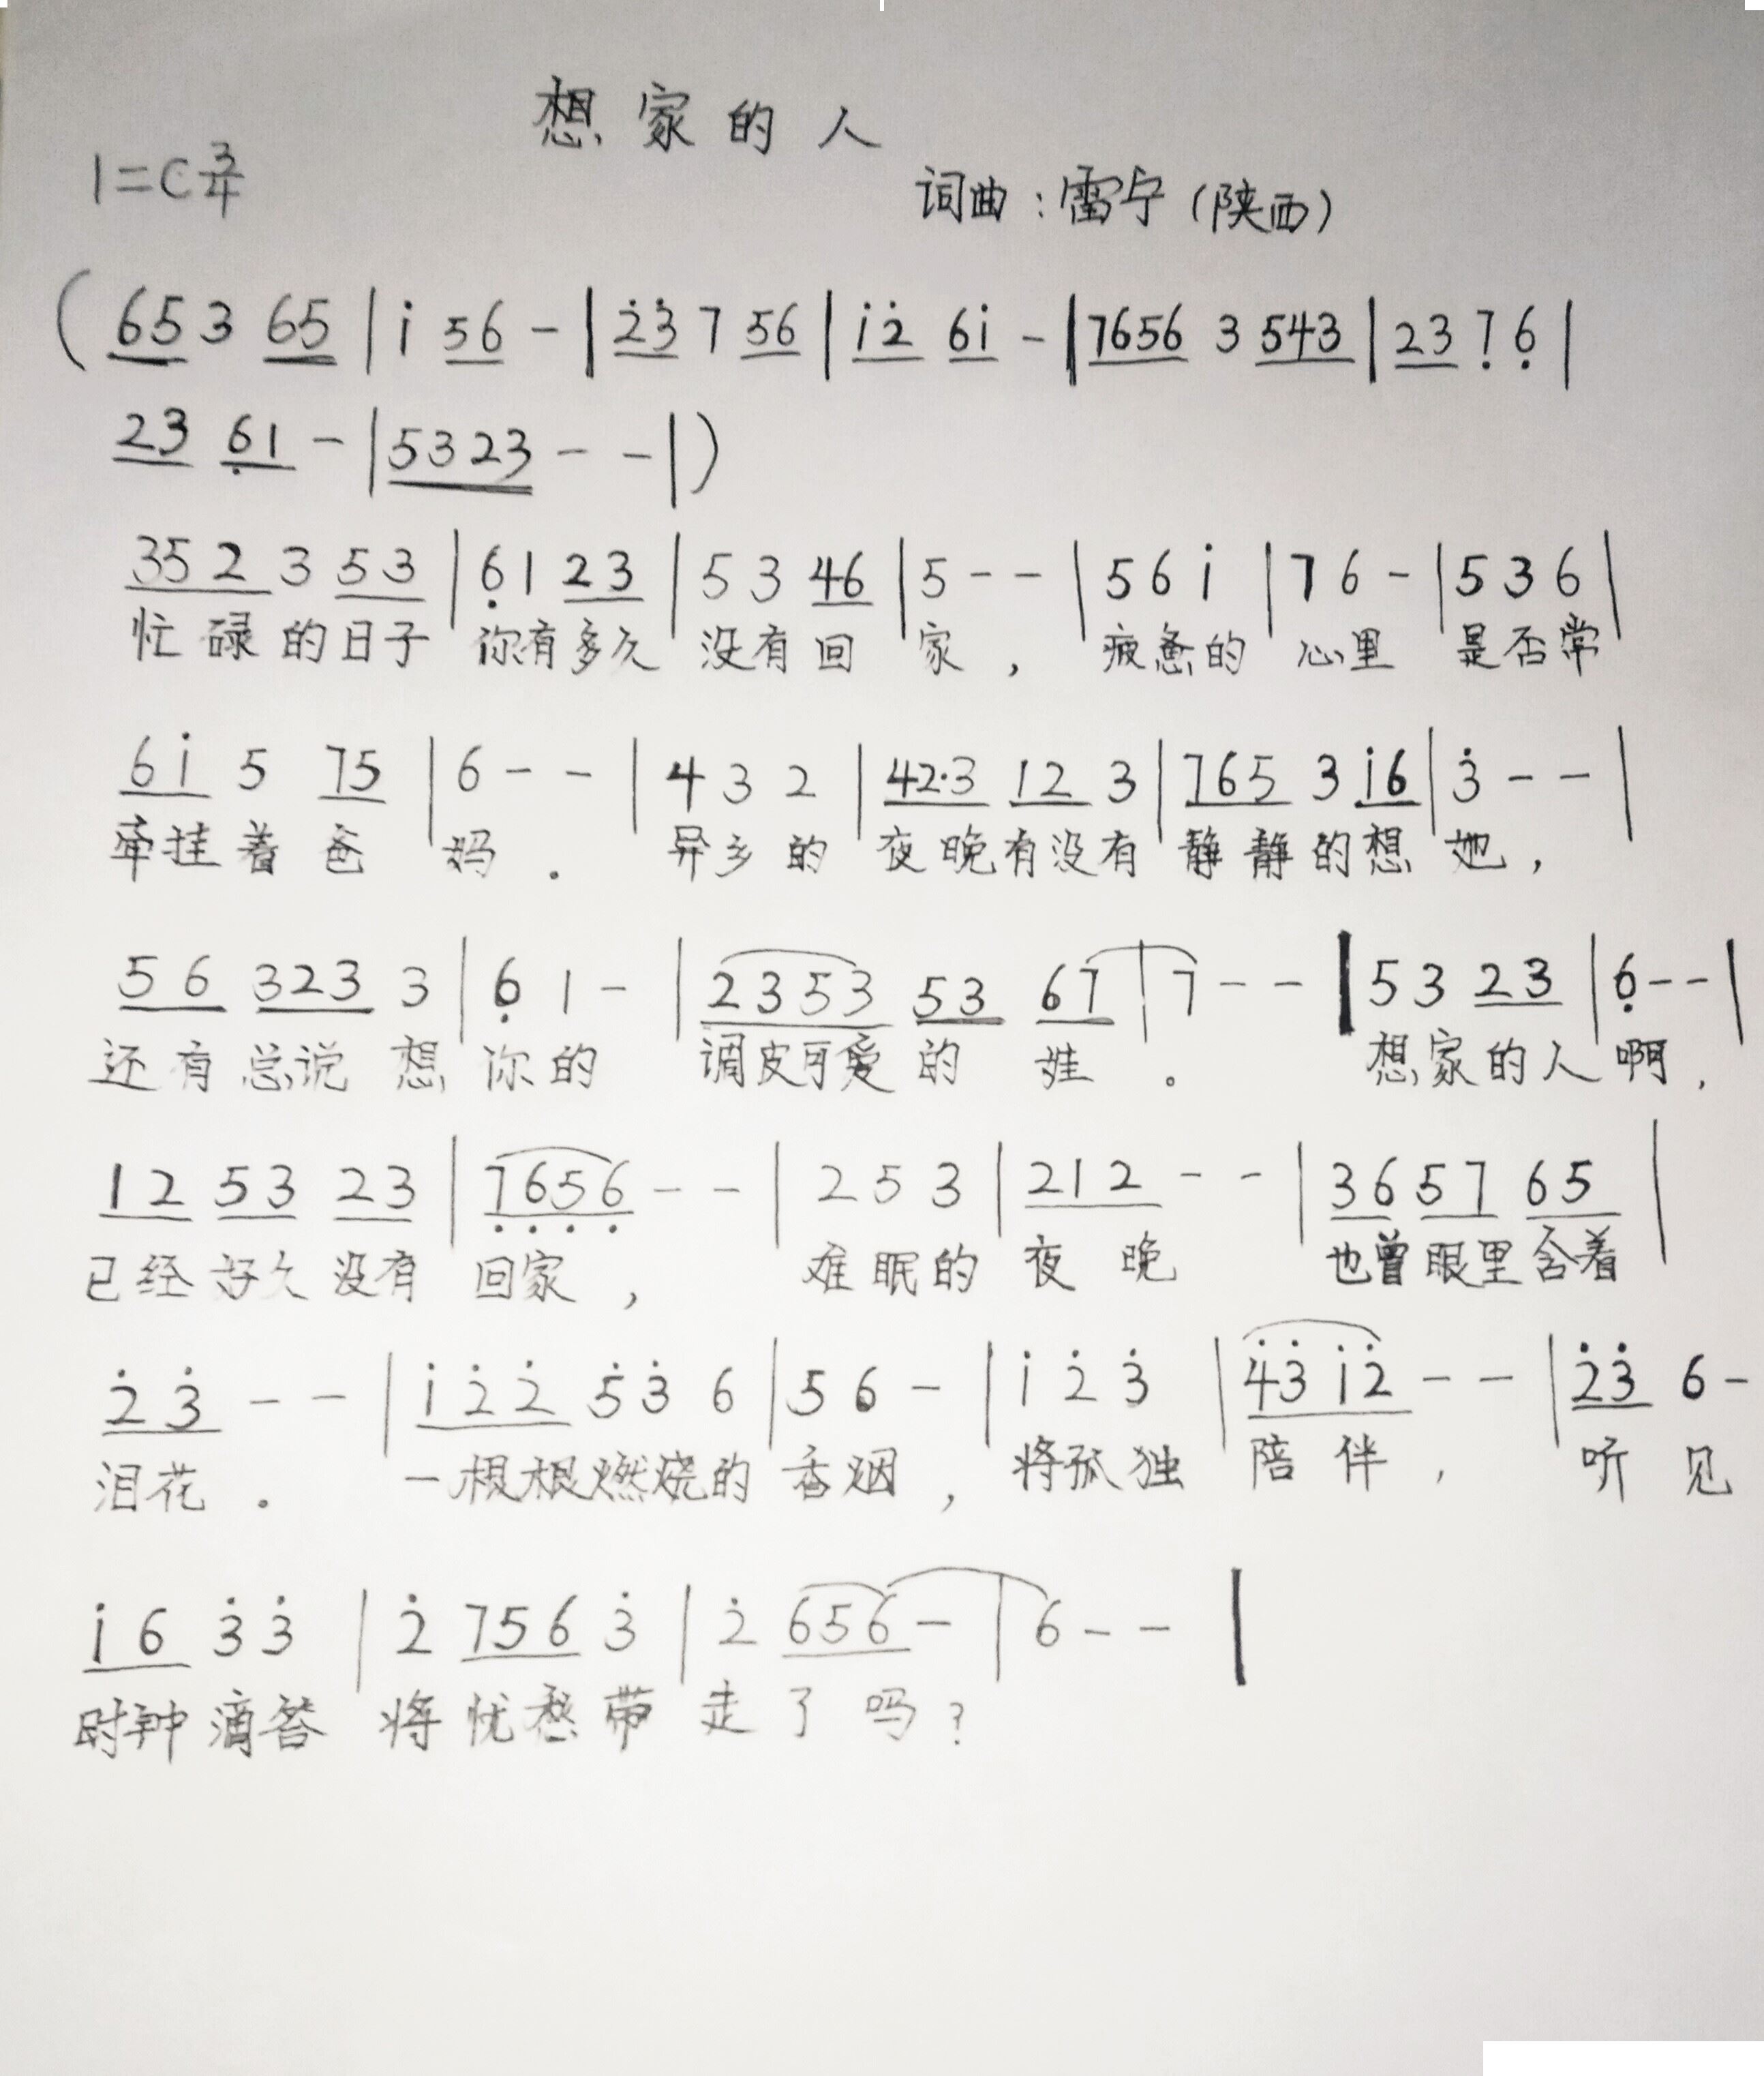 想家的人
1=C 3/4
词曲：雷宁（陕西）
( 65 3 65 | i 56 - | 2̇3̇ 7 56 | i2̇ 6i - | 7656 3 543 | 23 7̣ 6̣ |
23 6̣1 - | 5323 - - | )
352 3 53 | 6̣ 1 23 | 5 3 46 | 5 - - | 5 6 i | 7 6 - | 5 3 6 |
忙碌的日子 你有多久 没有回 家， 疲惫的 心里 是否常
6i 5 75 | 6 - - | 4 3 2 | 42·3 12 3 | 765 3 i6 | 3̇ - - |
牵挂着爸 妈． 异乡的 夜晚有没有 静静的想 她，
56 323 3 | 6̣ 1 - | 2353 53 67 | 7 - - | 5 3 23 | 6̣ - - |
还有总说想 你的 调皮可爱的 娃。 想家的人 啊，
12 53 23 | 7̣6̣5̣6̣ - - | 2 5 3 | 212 - - | 36 57 65 |
已经好久没有 回家， 难眠的 夜晚 也曾眼里含着
2̇3̇ - - | i2̇2̇ 5̇3̇ 6 | 5 6 - | i 2̇ 3̇ | 4̇3̇i2̇ - - | 2̇3̇ 6 -
泪花． 一根根燃烧的 香烟， 将孤独 陪伴， 听见
i6 3̇3̇ | 2̇ 756 3̇ | 2̇ 656 - | 6 - - |
时钟滴答 将忧愁带 走了吗？